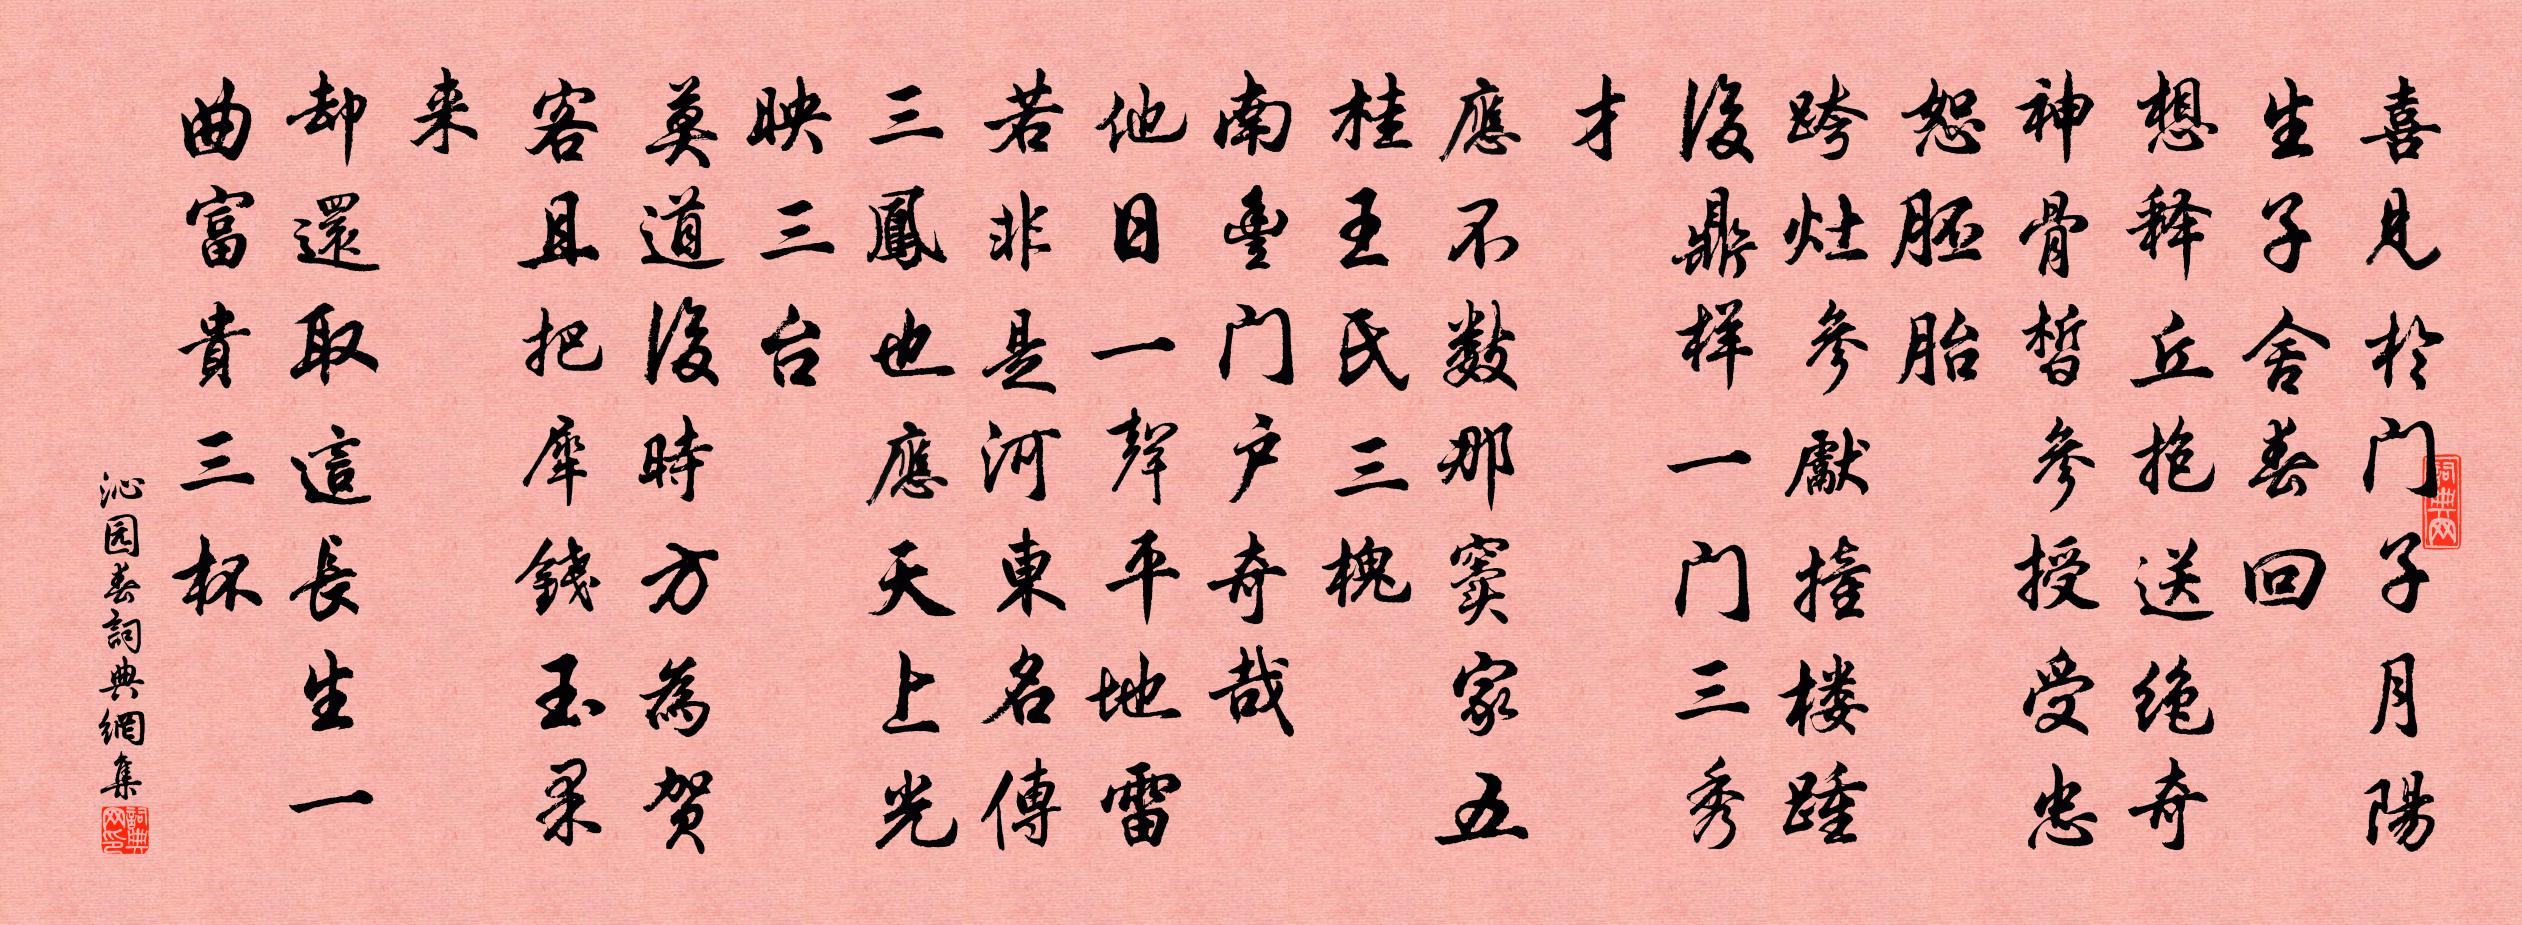 喜見於门子月陽
生子舍春回
想释丘抱送绝奇
神骨晳参授受忠
恕胚胎
跨灶参獻撞楼踵
後鼎样一门三秀
才
應不数那窦家五
桂王氏三槐
南豊门户奇哉
他日一聲平地雷
若非是河東名傳
三鳳也應天上光
映三台
莫道後時方為贺
客且把犀錢玉果
来
却還取這長生一
曲富貴三杯
沁园春詞典網集
词典网
詞典网印